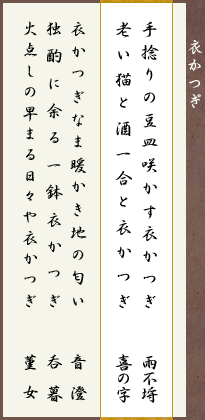 衣かつぎ
手捻りの豆皿咲かす衣かつぎ 雨不埒
老い猫と酒一合と衣かつぎ 喜の字
衣かつぎなま暖かき地の匂い 音澄
独酌に余る一鉢衣かつぎ 呑暮
火点しの早まる日々や衣かつぎ 菫女